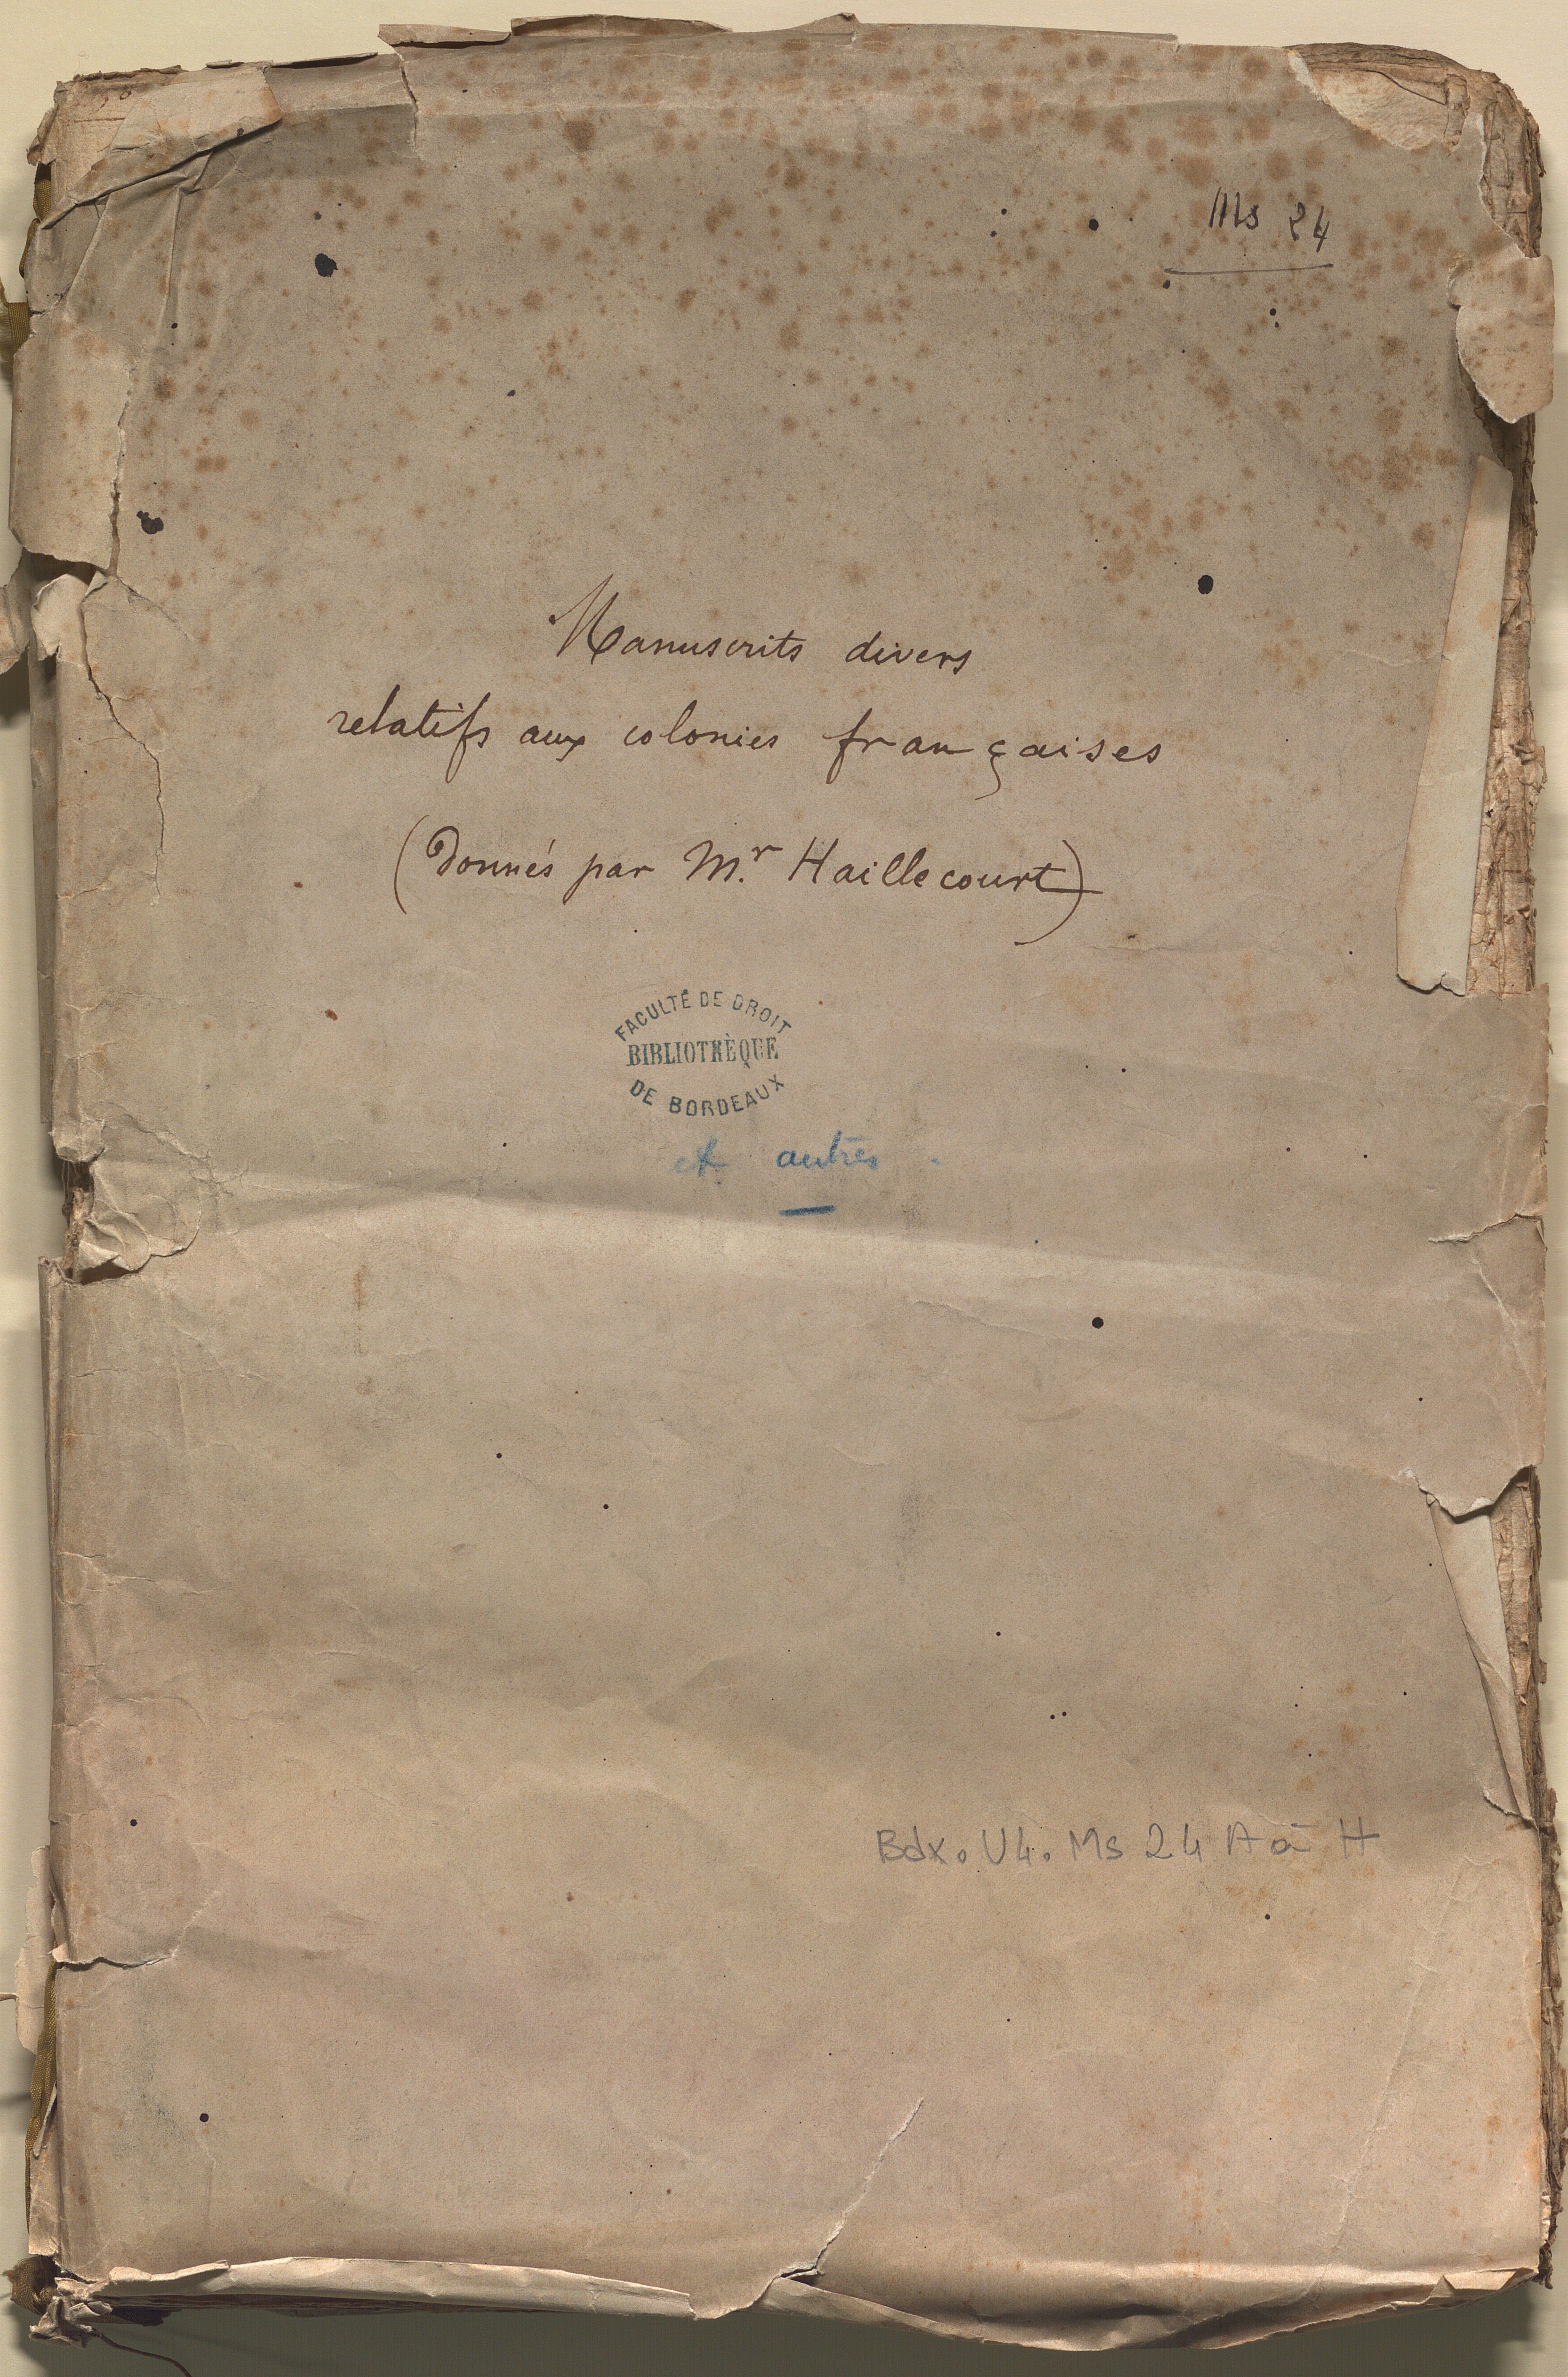 Ms 24
Manuscrits divers
relatifs aux colonies françaises
(Donnés par M.r Haillecourt)
FACULTÉ DE DROIT
BIBLIOTHÈQUE
DE BORDEAUX
et autres.
Bdx. U4. Ms 24 A à H